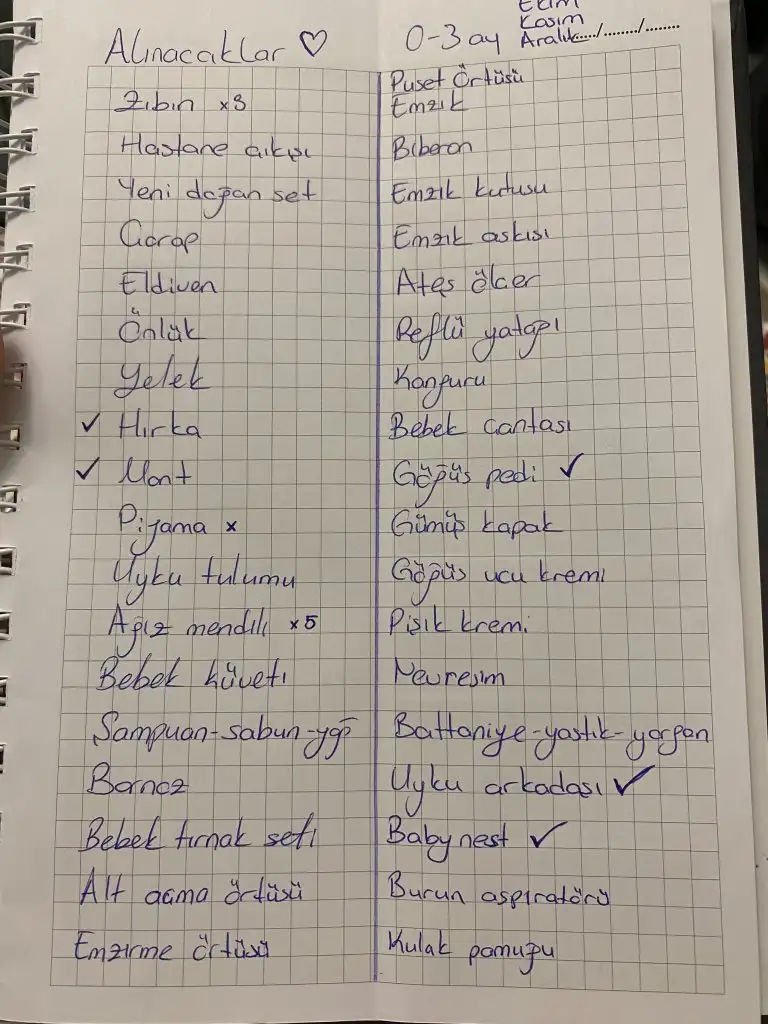 Alınacaklar ♡
Zıbın x3
Hastane çıkışı
Yeni doğan set
Çorap
Eldiven
Önlük
Yelek
✓ Hırka
✓ Mont
Pijama x
Uyku tulumu
Ağız mendili x5
Bebek küveti
Şampuan-sabun-yağ
Bornoz
Bebek tırnak seti
Alt açma örtüsü
Emzirme örtüsü
0-3 ay
Ekim
Kasım
Aralık..../......../........
Puset Örtüsü
Emzik
Biberon
Emzik kutusu
Emzik askısı
Ateş ölçer
Reflü yatağı
Kanguru
Bebek çantası
Göğüs pedi ✓
Gümüş kapak
Göğüs ucu kremi
Pişik kremi
Nevresim
Battaniye-yastık-yorgan
Uyku arkadaşı ✓
Baby nest ✓
Burun aspiratörü
Kulak pamuğu